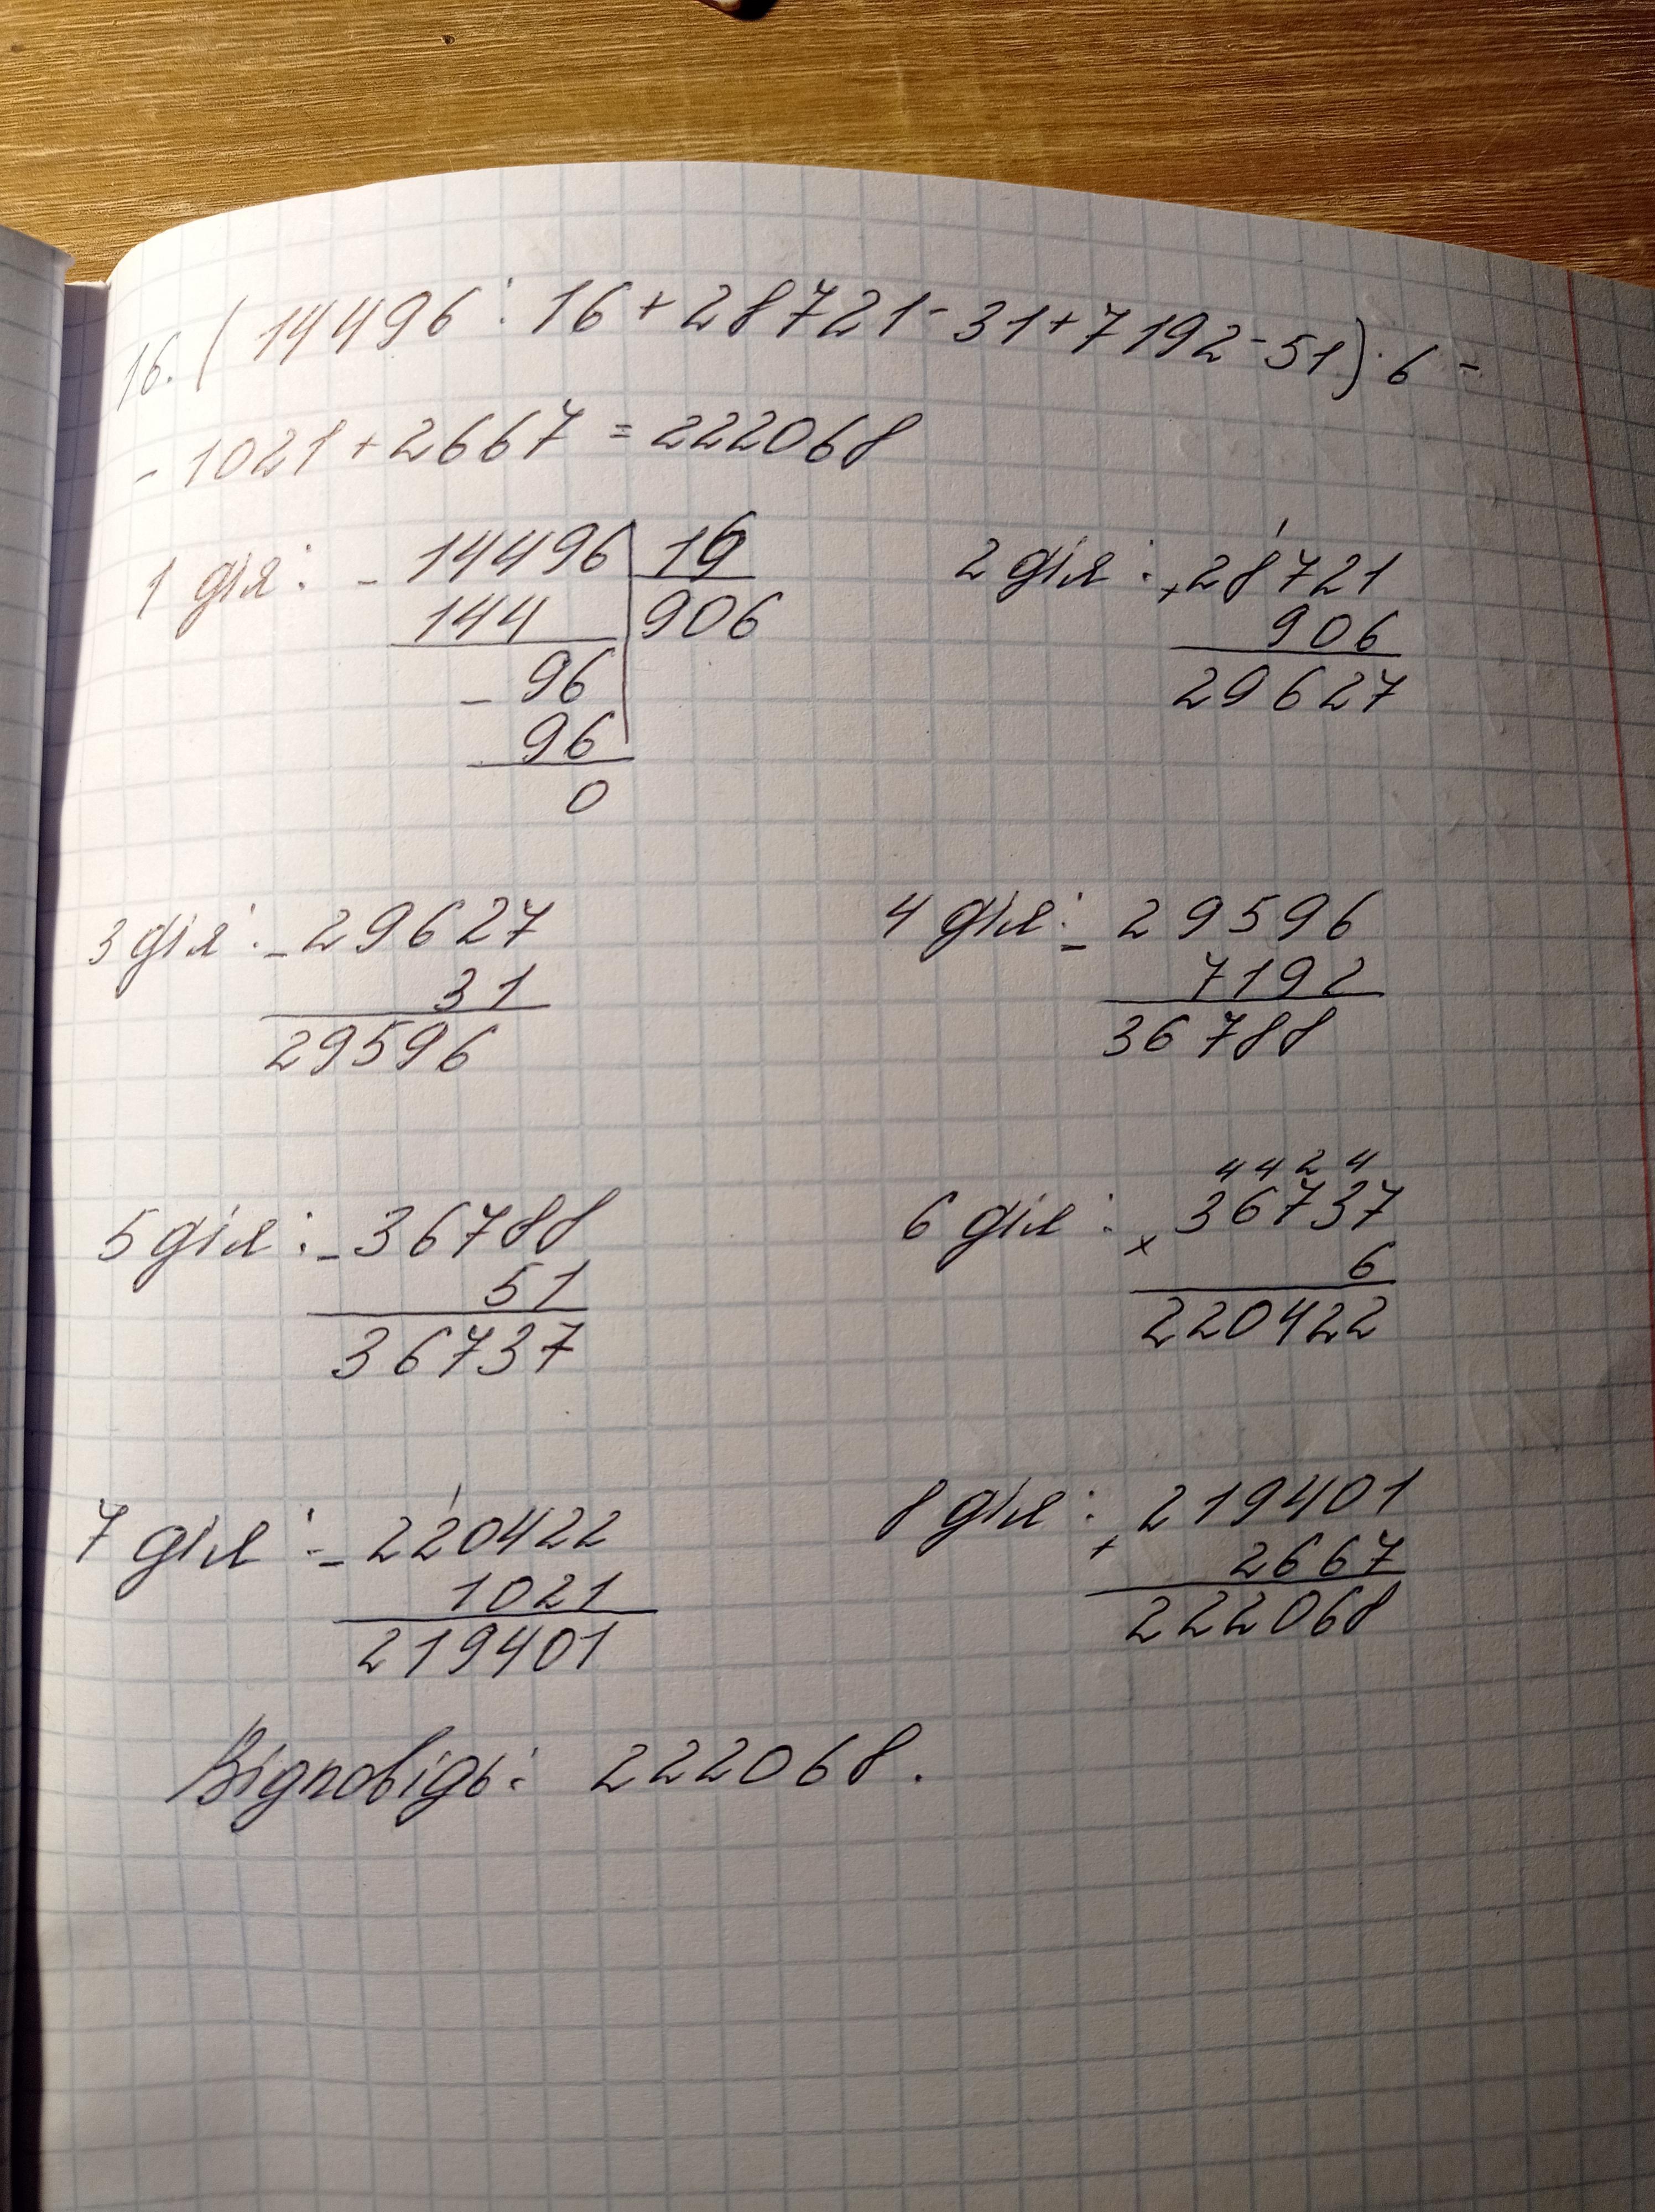 16. (14496 : 16 + 28721 - 31 + 7192 - 51) · 6 -
- 1021 + 2667 = 222068
1 дія: - 14496 | 16
144 | 906
- 96
96
0
2 дія: + 28721
906
29627
3 дія: - 29627
31
29596
4 дія: - 29596
7192
36788
5 дія: - 36788
51
36737
6 дія: 4 4 2 4
× 36737
6
220422
7 дія: - 220422
1021
219401
8 дія: + 219401
2667
222068
Відповідь: 222068.